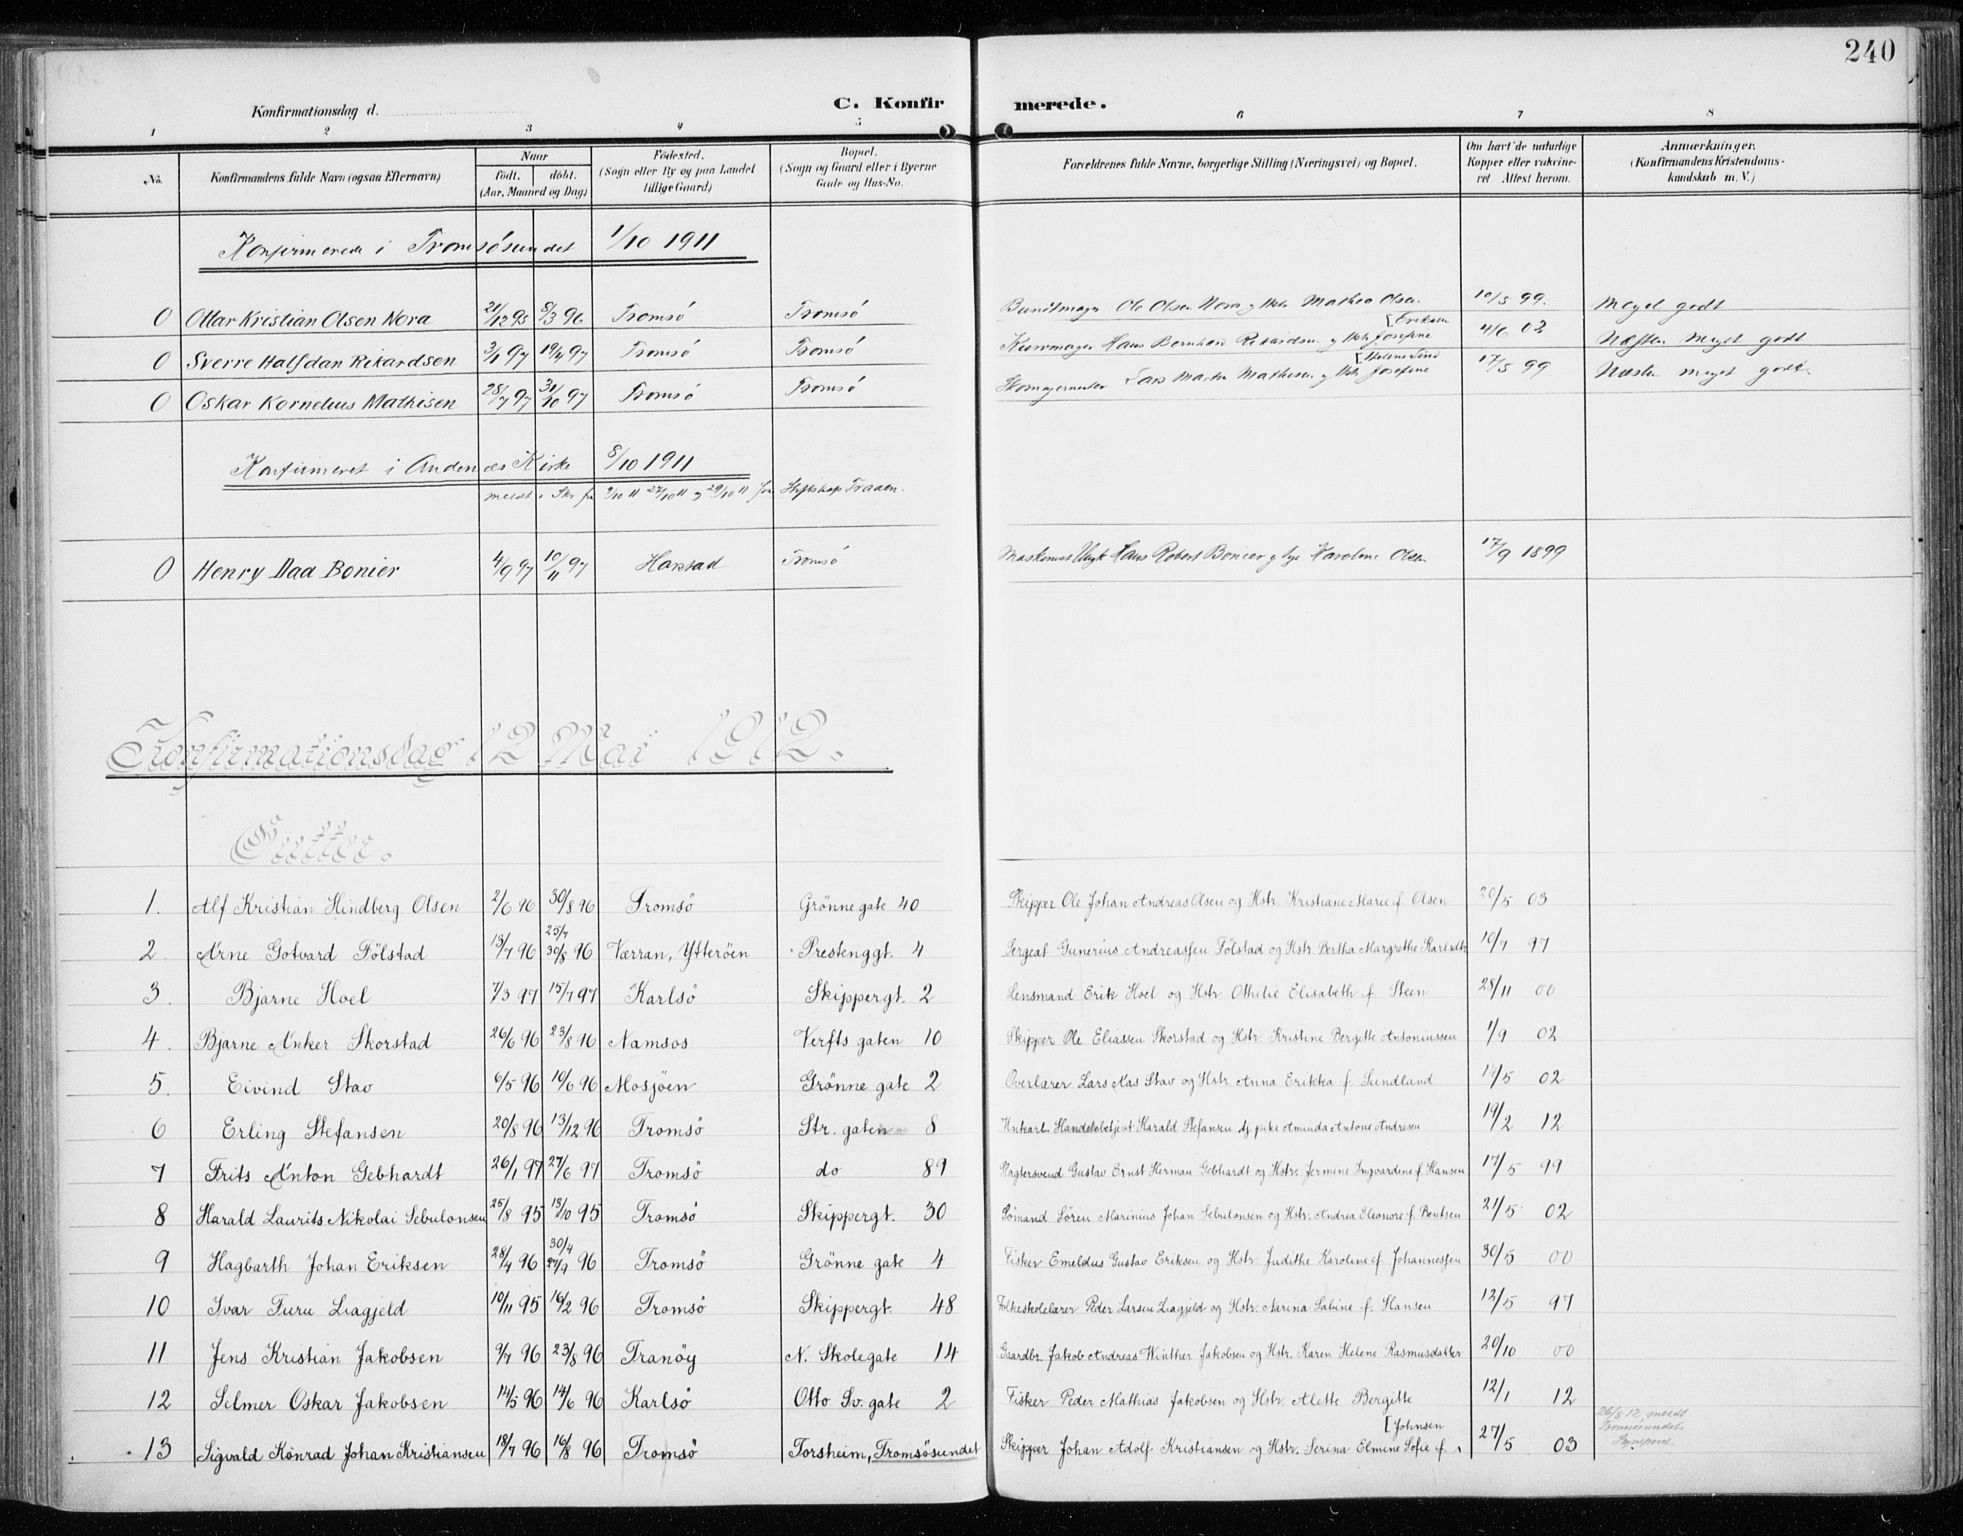 240
Konfirmationsdag d.
C. Konfirmerede.
1 2 3 4 5 6 7 8
No. Konfirmandens fulde Navn (ogsaa Efternavn) Naar født. døbt. (Aar, Maaned og Dag) Fødested. (Sogn eller By og paa Landet tillige Gaard) Bopæl. (Sogn og Gaard eller i Byerne Gade og Hus-No. Forældrenes fulde Navne, borgerlige Stilling (Næringsvei) og Bopæl. Om havt de naturlige Kopper eller vakcineret Attest herom. Anmærkninger. (Konfirmandens Kristendomskundskab m. V.)
Konfirmerede i Tromsösundet 1/10 1911
0 Ottar Kristian Olsen Nora 21/12 95 8/3 96 Tromsö Tromsö Buntmager Ole Olsen Nora og Hstr Mathea Olsen 10/5 99. Meget godt
0 Sverre Halfdan Rikardsen 3/1 97 19/4 97 Tromsö Tromsö Hans Bernhard Rikardsen og Hstr Josefine [Eriksen 4/6 03 Næsten meget godt
0 Oskar Kornelius Mathisen 28/7 97 31/10 97 Tromsö Tromsö Skomagermester Lars Martin Mathisen og Hstr Josefine [Helene Lind 17/5 99 Næsten meget godt
Konfirmeret i Andenæs Kirke 8/10 1911
meldt i Skr fra 9/10 11 27/10 11 og 29/10 11 fra Stiftskap Traaen.
0 Henry Daa Bonier 4/9 97 10/11 97 Harstad Tromsö Maskinist Hans Robert Bonier og Karoline Olsen 17/9 1899
Konfirmationsdag 12 Mai 1912.
Gutter.
1. Alf Kristian Hindberg Olsen 2/6 96 30/8 96 Tromsö Grönne gate 40 Skipper Ole Johan Andreas Olsen og Hstr. Kristiane Marie f. Olsen 20/5 03
2. Arne Gotvard Fölstad 13/7 96 25/7 30/8 96 Værran, Ytteröen Prestenggt. 4 Sergeat Gunerius Andreassen Fölstad og Hstr. Bertha Margrethe Karlsdtr 10/7 97
3. Bjarne Hoel 7/3 97 15/7 97 Karlsö Skippergt. 2 Lensmand Erik Hoel og Hstr Othilie Elisabeth f. Steen 28/11 00
4. Bjarne Anker Skorstad 26/6 96 23/8 96 Namsos Verfts gaten 10 Skipper Ole Eliassen Skorstad og Hstr. Kristine Bergitte Antoniussen 1/9 02
5. Eivind Stav 6/5 96 10/6 96 Mosjöen Grönne gate 2 Overlærer Lars Aas Stav og Hstr. Anna Erikka f. Sundland 14/5 02
6 Erling Stefansen 20/8 96 13/12 96 Tromsö Str. gaten 8 Unkarl Handelsbetjent Harald Stefansen og pike Aminda Antone Andresen 19/2 12
7 Frits Anton Gebhardt 26/1 97 27/6 97 Tromsö do 89 Slagtersvend Gustav Ernst Herman Gebhardt og Hstr. Jermine Ingvardine f. Hansen 17/5 99
8 Harald Laurits Nikolai Sebulonsen 25/8 95 13/10 95 Tromsö Skippergt. 30 Sömand Sören Marinius Johan Sebulonsen og Hstr. Andrea Eleonore f. Bentsen 21/5 02
9 Hagbarth Johan Eriksen 28/4 96 30/4 27/9 96 Tromsö Grönne gate 4 Fisker Emeldus Gustav Eriksen og Hstr. Judithe Karoline f. Johannessen 30/5 00
10 Ivar Furu Liagjeld 10/11 95 16/2 96 Tromsö Skippergt. 48 Folkeskolelærer Peder Larsen Liagjeld og Hstr. Marina Sabine f. Hansen 12/5 97
11 Jens Kristian Jakobsen 9/7 96 23/8 96 Tranöy N. Skolegate 14 Gaardbr. Jakob Andreas Winther Jakobsen og Hstr. Karen Helene Rasmusdatter 20/10 00
12 Selmer Oskar Jakobsen 14/5 96 14/6 96 Karlsö Otto Sv. gate 2 Fisker Peder Mathias Jakobsen og Hstr. Alette Bergitte [Johnsen 12/1 12
13 Sigvald Konrad Johan Kristiansen 18/7 96 16/8 96 Tromsö Torsheim, Tromsösundet Skipper Johan Adolf Kristiansen og Hstr. Serina Elmine Sofie f. 27/5 03 26/8 12 meldt Tromsösundets